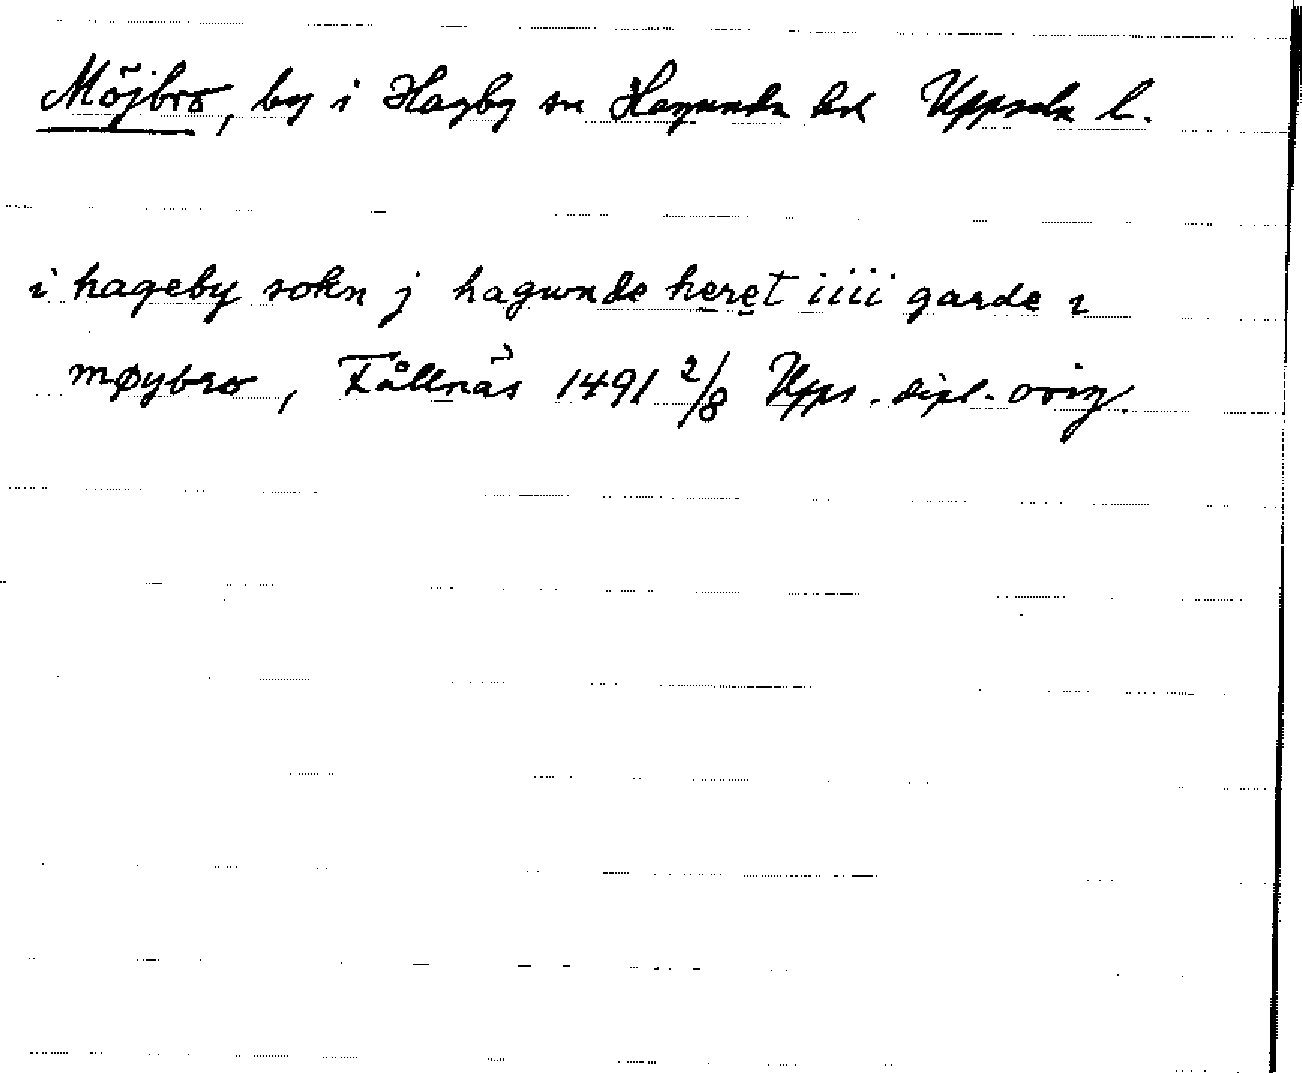 Möjbro, by i Hagby sn Hagunda hd Uppsala l.
i hageby sokn j hagunde heret iiii garde i
møybro, Fållnäs 1491 2/8 Upps. dipl. orig.